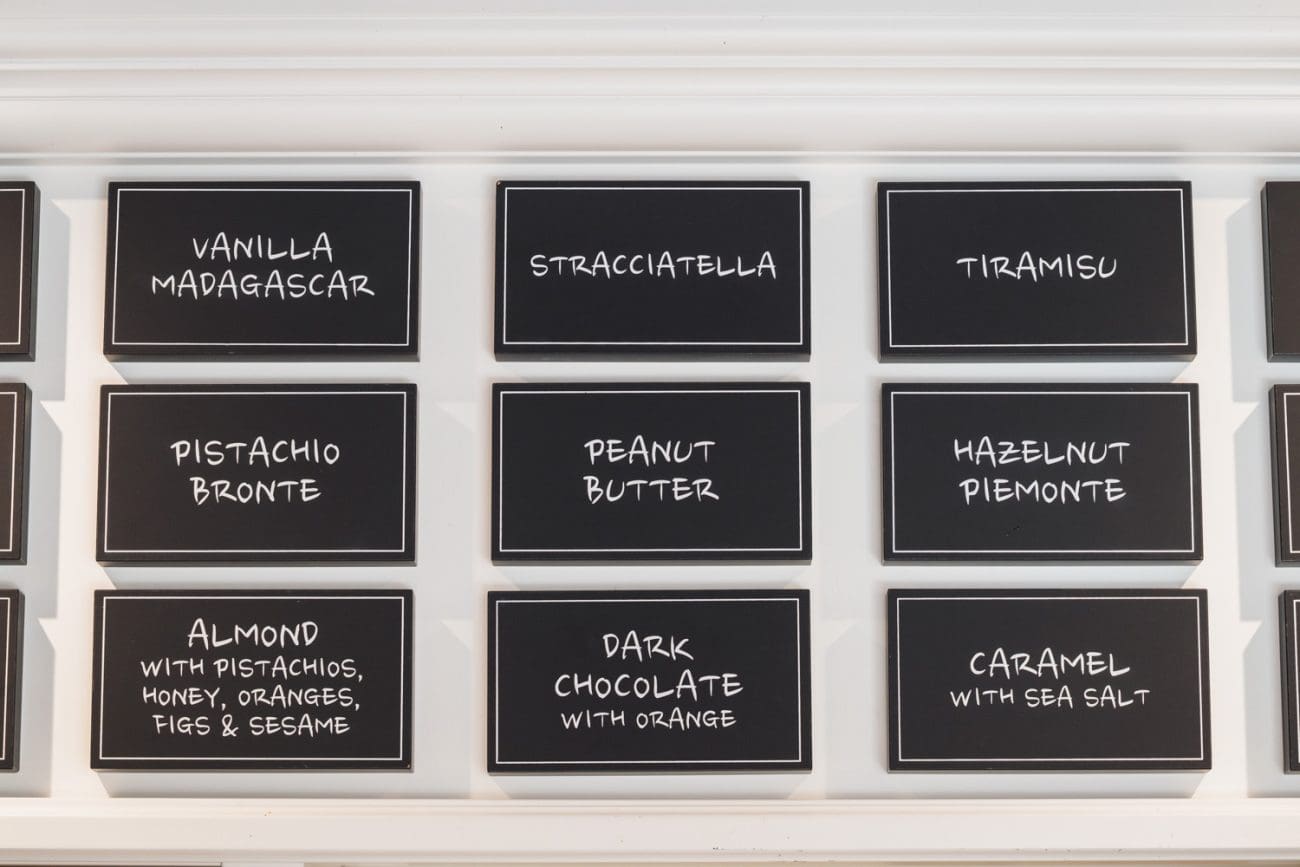 VANILLA
MADAGASCAR
STRACCIATELLA
TIRAMISU
PISTACHIO
BRONTE
PEANUT
BUTTER
HAZELNUT
PIEMONTE
ALMOND
WITH PISTACHIOS,
HONEY, ORANGES,
FIGS & SESAME
DARK
CHOCOLATE
WITH ORANGE
CARAMEL
WITH SEA SALT